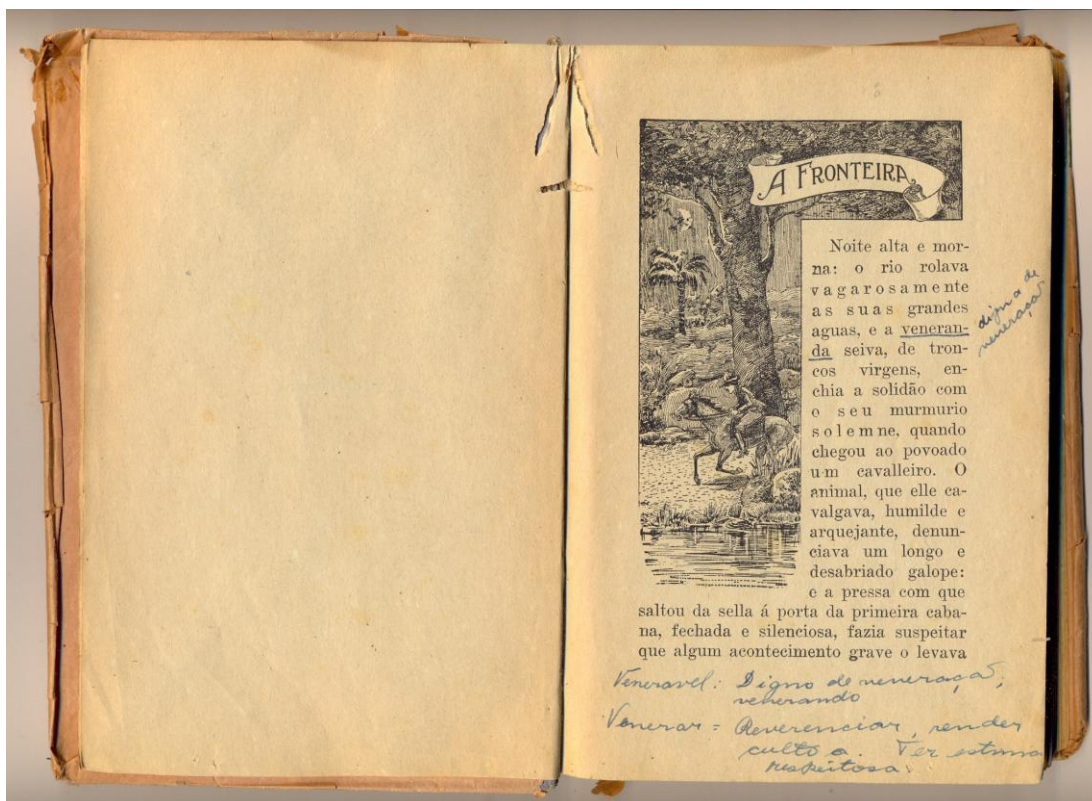 A FRONTEIRA
Noite alta e mor-
na: o rio rolava
vagarosamente
as suas grandes
aguas, e a veneran-
da seiva, de tron-
cos virgens, en-
chia a solidão com
o seu murmurio
solemne, quando
chegou ao povoado
um cavalleiro. O
animal, que elle ca-
valgava, humilde e
arquejante, denun-
ciava um longo e
desabriado galope:
e a pressa com que
saltou da sella á porta da primeira caba-
na, fechada e silenciosa, fazia suspeitar
que algum acontecimento grave o levava
digna de
veneração
Veneravel: Digno de veneração,
venerando
Venerar = Reverenciar, render
culto a. Ter estima
respeitosa.